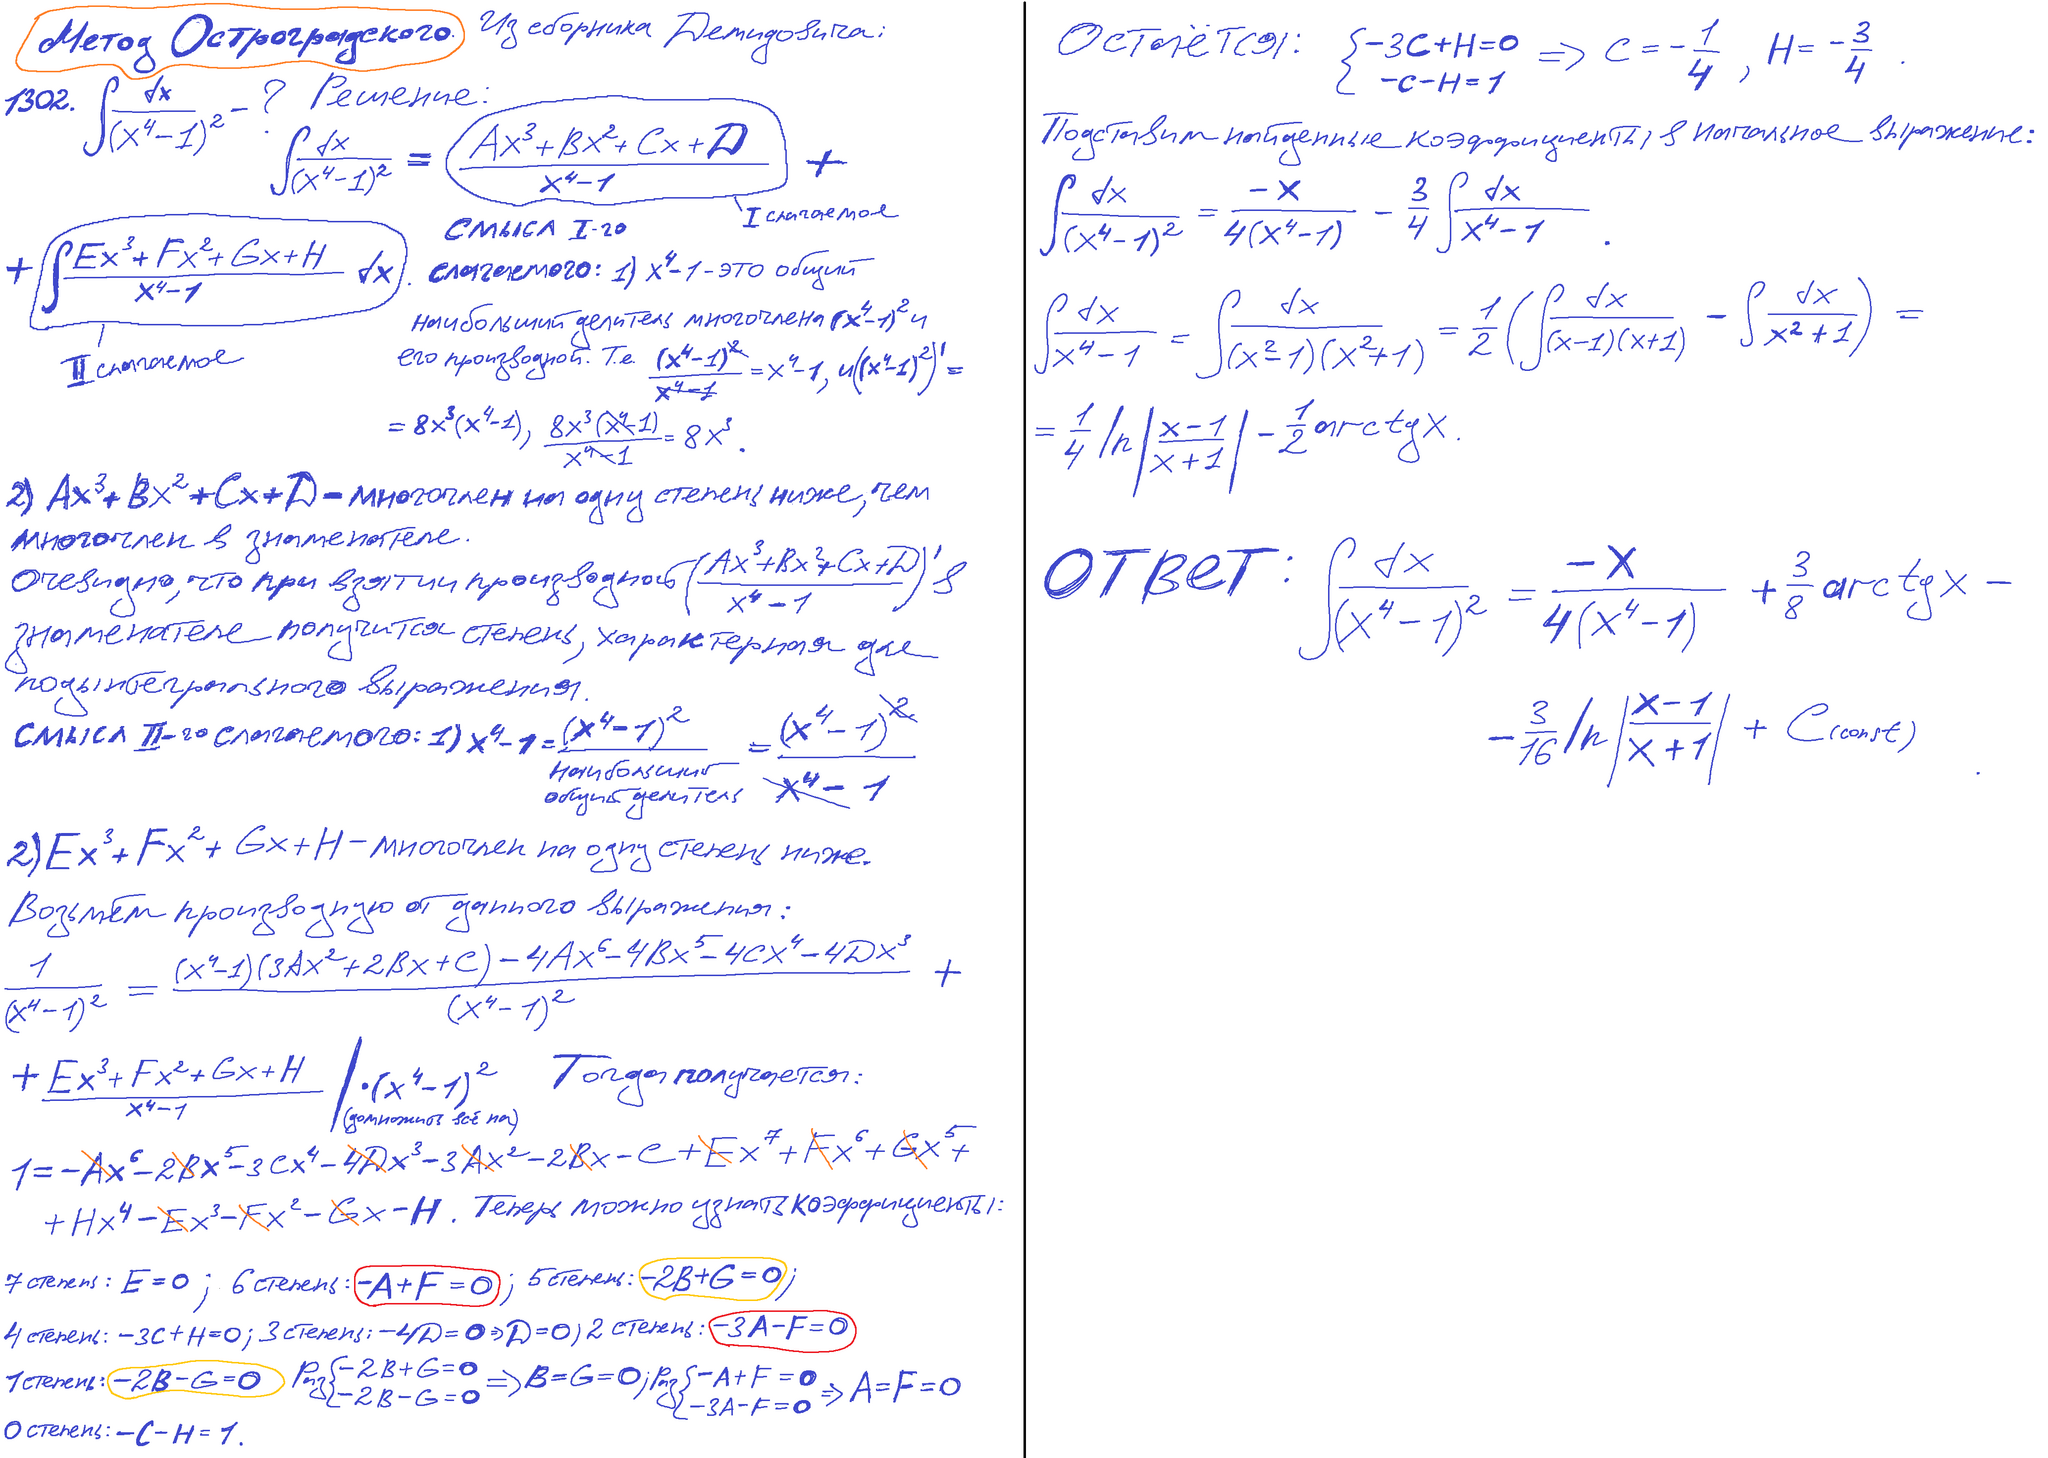 Метод Остроградского. Из сборника Демидовича:
1302. ∫ dx/(x⁴-1)² - ? Решение:
∫ dx/(x⁴-1)² = (Ax³+Bx²+Cx+D)/(x⁴-1) +
I слагаемое
+ ∫ (Ex³+Fx²+Gx+H)/(x⁴-1) dx.
II слагаемое
Смысл I-го
слагаемого: 1) x⁴-1 - это общий
наибольший делитель многочлена (x⁴-1)² и
его производной. Т.е. (x⁴-1)²/(x⁴-1) = x⁴-1, и ((x⁴-1)²)' =
= 8x³(x⁴-1), 8x³(x⁴-1)/(x⁴-1) = 8x³.
2) Ax³+Bx²+Cx+D - многочлен на одну степень ниже, чем
многочлен в знаменателе.
Очевидно, что при взятии производной ((Ax³+Bx²+Cx+D)/(x⁴-1))' в
знаменателе получится степень, характерная для
подынтегрального выражения.
Смысл II-го слагаемого: 1) x⁴-1 = (x⁴-1)²/наибольший общий делитель = (x⁴-1)²/(x⁴-1)
2) Ex³+Fx²+Gx+H - многочлен на одну степень ниже.
Возьмём производную от данного выражения:
1/(x⁴-1)² = ((x⁴-1)(3Ax²+2Bx+C)-4Ax⁶-4Bx⁵-4Cx⁴-4Dx³)/(x⁴-1)² +
+ (Ex³+Fx²+Gx+H)/(x⁴-1) | ·(x⁴-1)² Тогда получается:
(домножить всё на)
1 = -Ax⁶-2Bx⁵-3Cx⁴-4Dx³-3Ax²-2Bx-C+Ex⁷+Fx⁶+Gx⁵+
+Hx⁴-Ex³-Fx²-Gx-H. Теперь можно узнать коэффициенты:
7 степень: E=0; 6 степень: -A+F=0; 5 степень: -2B+G=0;
4 степень: -3C+H=0; 3 степень: -4D=0 => D=0; 2 степень: -3A-F=0
1 степень: -2B-G=0 Из {-2B+G=0 -2B-G=0 => B=G=0; Из {-A+F=0 -3A-F=0 => A=F=0
0 степень: -C-H=1.
Остаётся: {-3C+H=0 -C-H=1 => C=-1/4, H=-3/4.
Подставим найденные коэффициенты в начальное выражение:
∫ dx/(x⁴-1)² = -x/4(x⁴-1) - 3/4 ∫ dx/(x⁴-1).
∫ dx/(x⁴-1) = ∫ dx/(x²-1)(x²+1) = 1/2 (∫ dx/(x-1)(x+1) - ∫ dx/(x²+1)) =
= 1/4 ln|(x-1)/(x+1)| - 1/2 arctgx.
ОТВЕТ: ∫ dx/(x⁴-1)² = -x/4(x⁴-1) + 3/8 arctgx -
- 3/16 ln|(x-1)/(x+1)| + C(const).